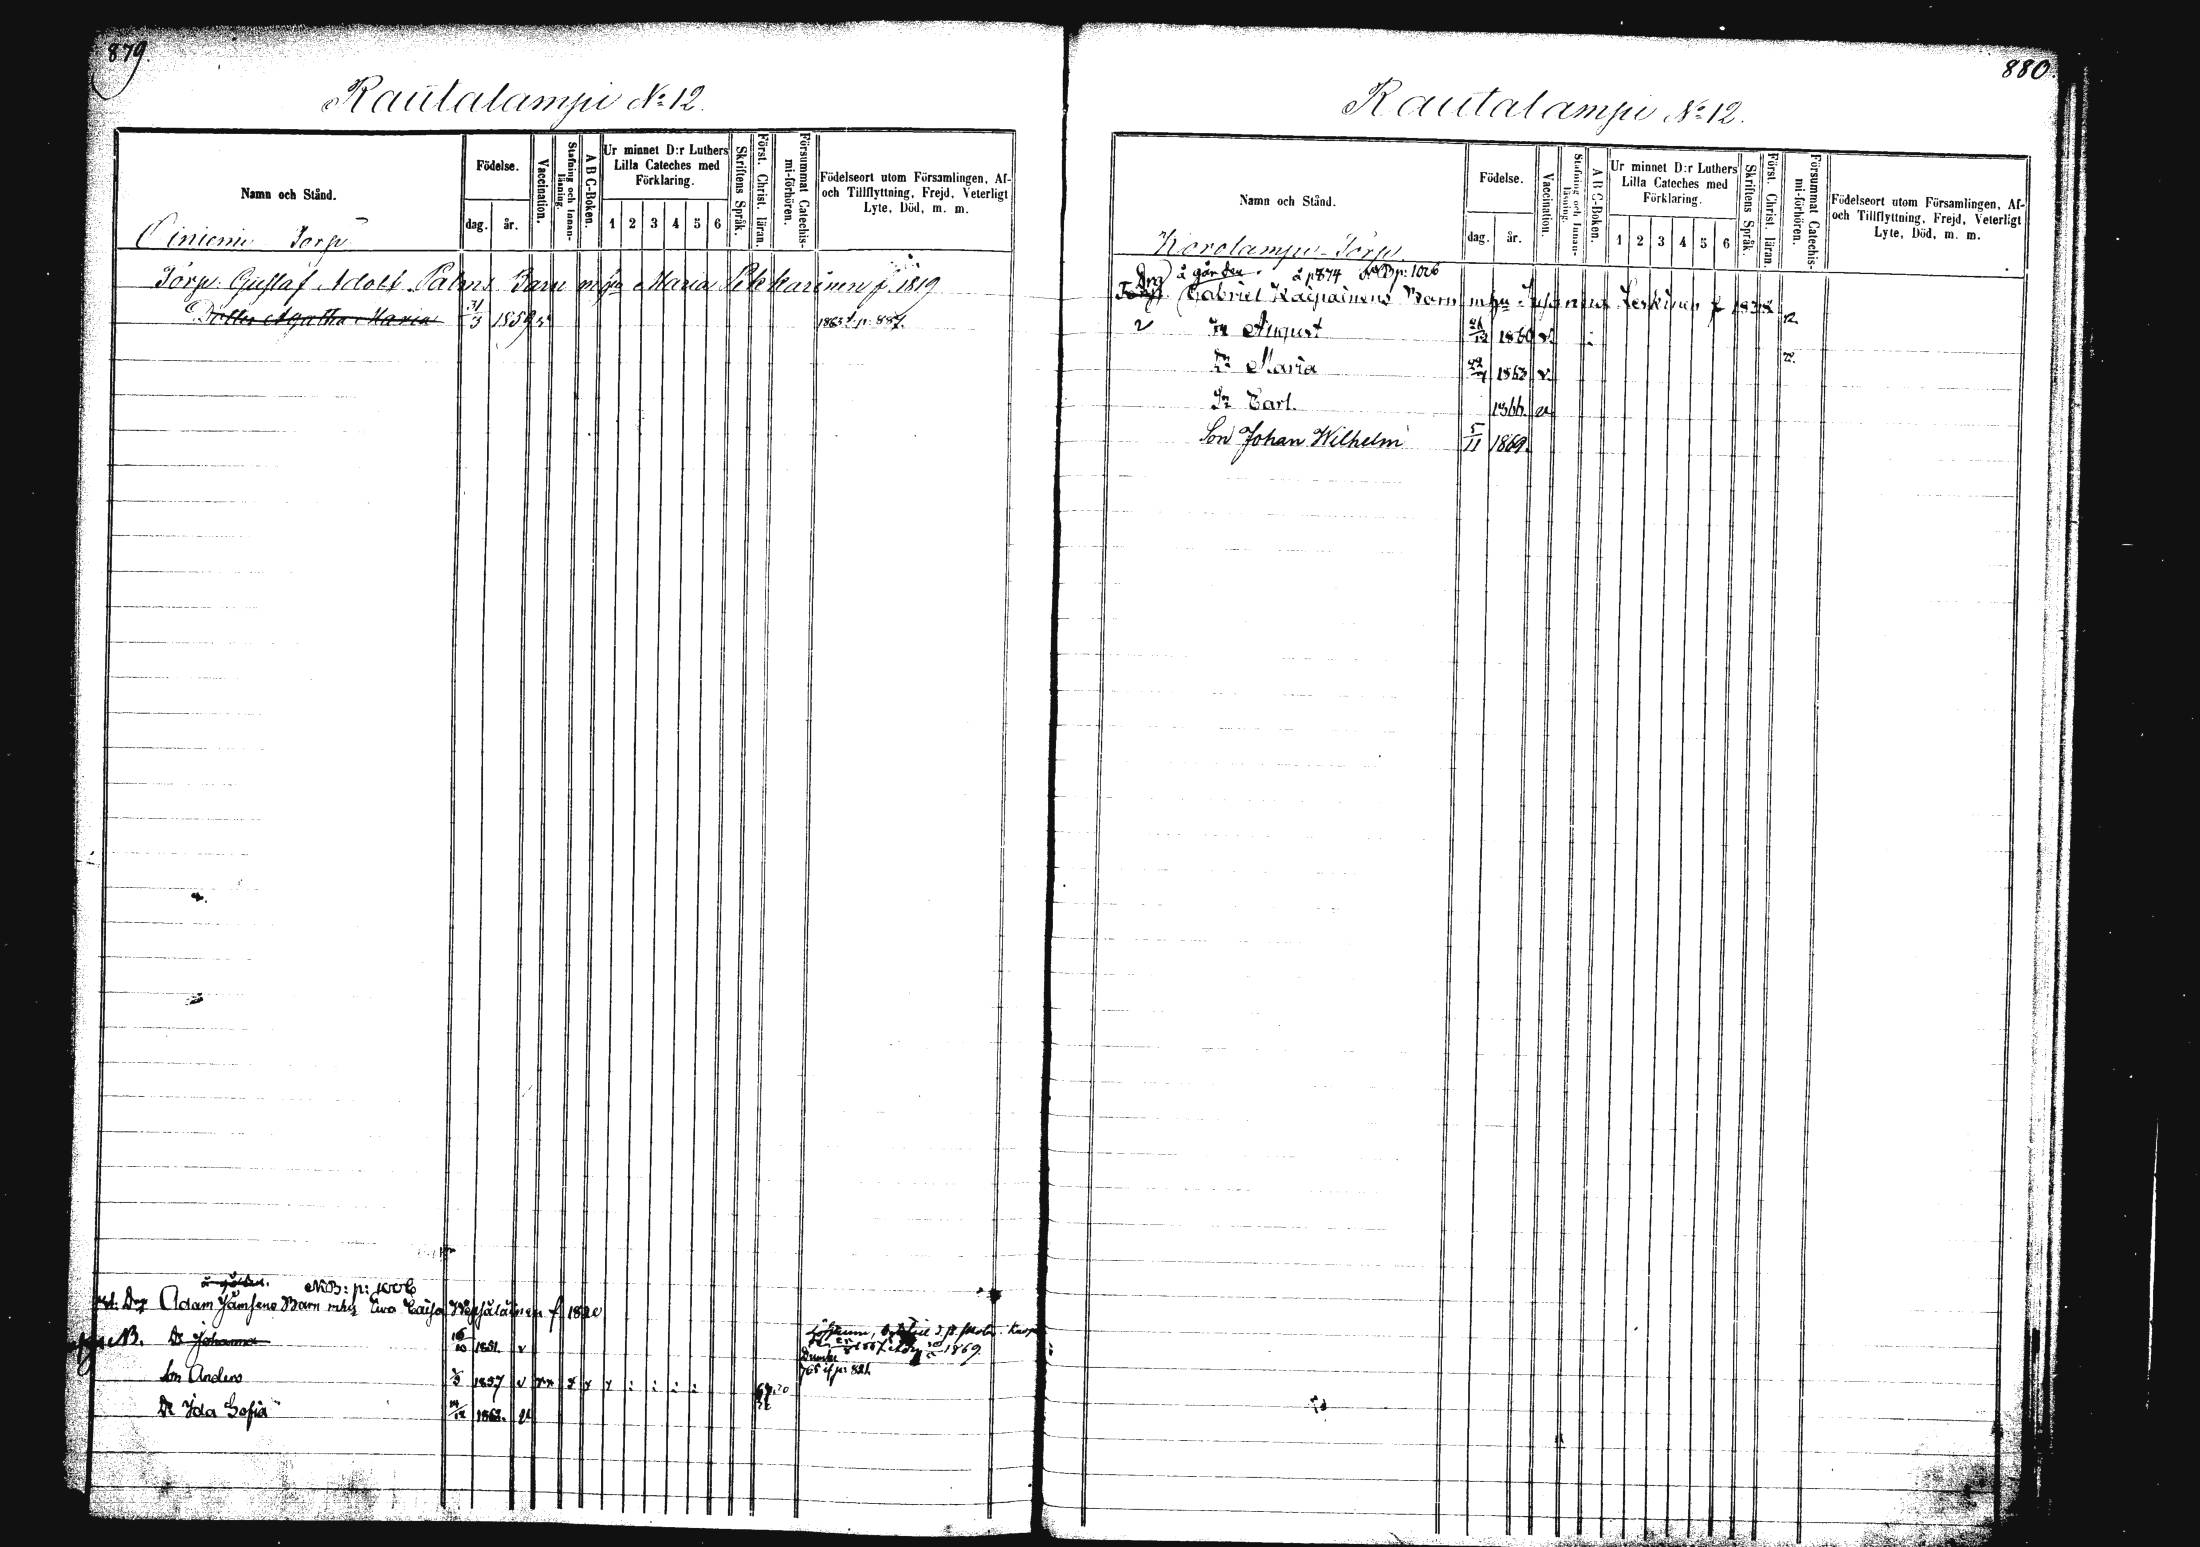 879.
Rautalampi No 12.
Namn och Stånd.
Födelse.
dag. år.
Vaccination.
Stafning och Innan-läsning.
A B C-Boken.
Ur minnet D:r Luthers
Lilla Cateches med
Förklaring.
1 2 3 4 5 6
Skriftens Språk.
Först. Christ. läran.
Försummat Catechis-mi-förhören.
Födelseort utom Församlingen, Af-
och Tillflyttning, Frejd, Veterligt
Lyte, Död, m. m.
Oiniemi Torp
Torp. Gustaf Adolf Palms Barn m hu Maria Pekkarinen f. 1819
Dotter Agatha Maria 31/3 1859 p. 887.
å gården. NB: p:
Adam Jämsens Barn Ewa Caisa f
Dr Johanna 16/10 1851. v 1869.
Son Anders 1857 v
Dr Ida Sofia
880.
Rautalampi No 12.
Namn och Stånd.
Födelse.
dag. år.
Vaccination.
Stafning och Innan-läsning.
A B C-Boken.
Ur minnet D:r Luthers
Lilla Cateches med
Förklaring.
1 2 3 4 5 6
Skriftens Språk.
Först. Christ. läran.
Försummat Catechis-mi-förhören.
Födelseort utom Församlingen, Af-
och Tillflyttning, Frejd, Veterligt
Lyte, Död, m. m.
Korolampi Torp.
Drg å gården. å p 874 p: 1026
Gabriel Kaipainens Barn m hu Susanna f
August 1860 v.
Dr Maria 1863 v.
Sn Carl. 1866. v
Son Johan Wilhelm 5/11 1869.